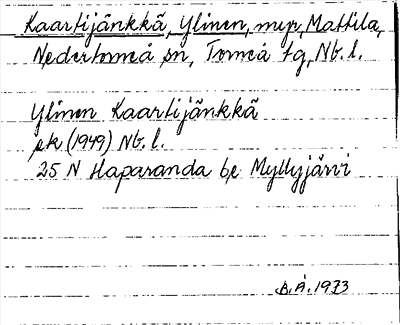 Kaartijänkkä, Ylinen, myr, Mattila,
Nedertorneå sn, Torneå tg, Nb. l.
Ylinen Kaartijänkkä
ek (1949) Nb. l.
25 N Haparanda be Myllyjärvi
B.Å. 1973